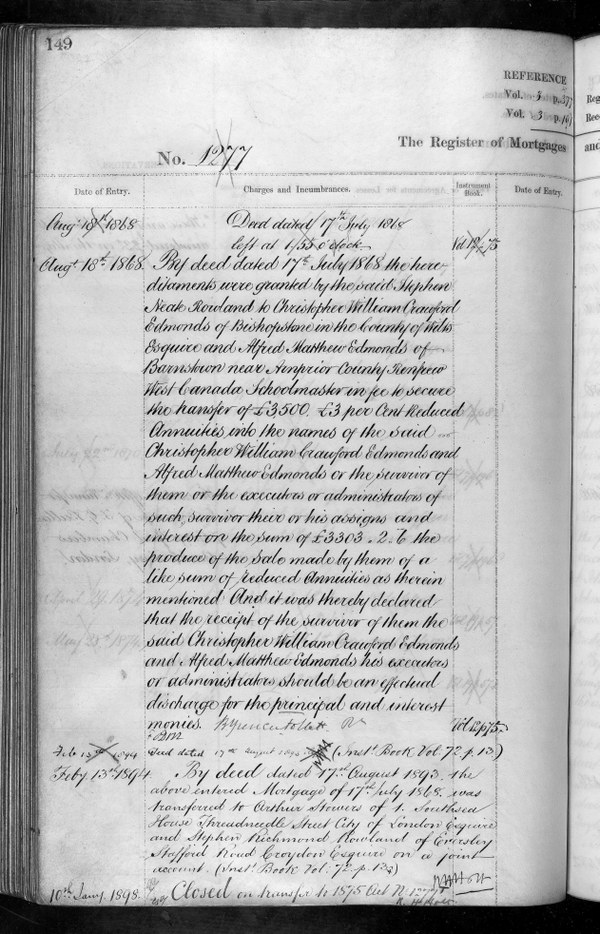 149
REFERENCE
Vol. 5 p. 377
Vol. 3 p. 191
The Register of Mortgages and
No. 1277
Date of Entry. Charges and Incumbrances. Instrument Book. Date of Entry.
Augt 18th 1868 Deed dated 17th July 1868
left at 1/55 o'clock Vol 12 p 75
Augt 18th 1868. By deed dated 17th July 1868 the here-
ditaments were granted by the said Stephen
Neate Rowland to Christopher William Crawford
Edmonds of Bishopstone in the County of Wilts
Esquire and Alfred Matthew Edmonds of
Barnstown near Arnprior County Renfrew
West Canada Schoolmaster in fee to secure
the transfer of £3500. £3 per Cent Reduced
Annuities into the names of the said
Christopher William Crawford Edmonds and
Alfred Matthew Edmonds or the survivor of
them or the executors or administrators of
such survivor their or his assigns and
interest on the sum of £3303. 2. 6 the
produce of the Sale made by them of a
like sum of reduced Annuities as therein
mentioned And it was thereby declared
that the receipt of the survivor of them the
said Christopher William Crawford Edmonds
and Alfred Matthew Edmonds his executors
or administrators should be an effectual
discharge for the principal and interest
monies. Vol 12 p 75
Feb 13th 1894 Deed dated 17th August 1893 (Inst. Book Vol. 72. p. 13)
Feby. 13th 1894 By deed dated 17th August 1893. the
above entered Mortgage of 17th July 1868. was
transferred to Arthur Stowers of 1. Southsea
House Threadneedle Street City of London Esquire
and Stephen Richmond Rowland of Eversley
Stafford Road Croydon Esquire on a joint
account. (Inst. Book Vol. 72. p. 13)
10th Jany. 1898. Closed on transfer to 1875 Act N.